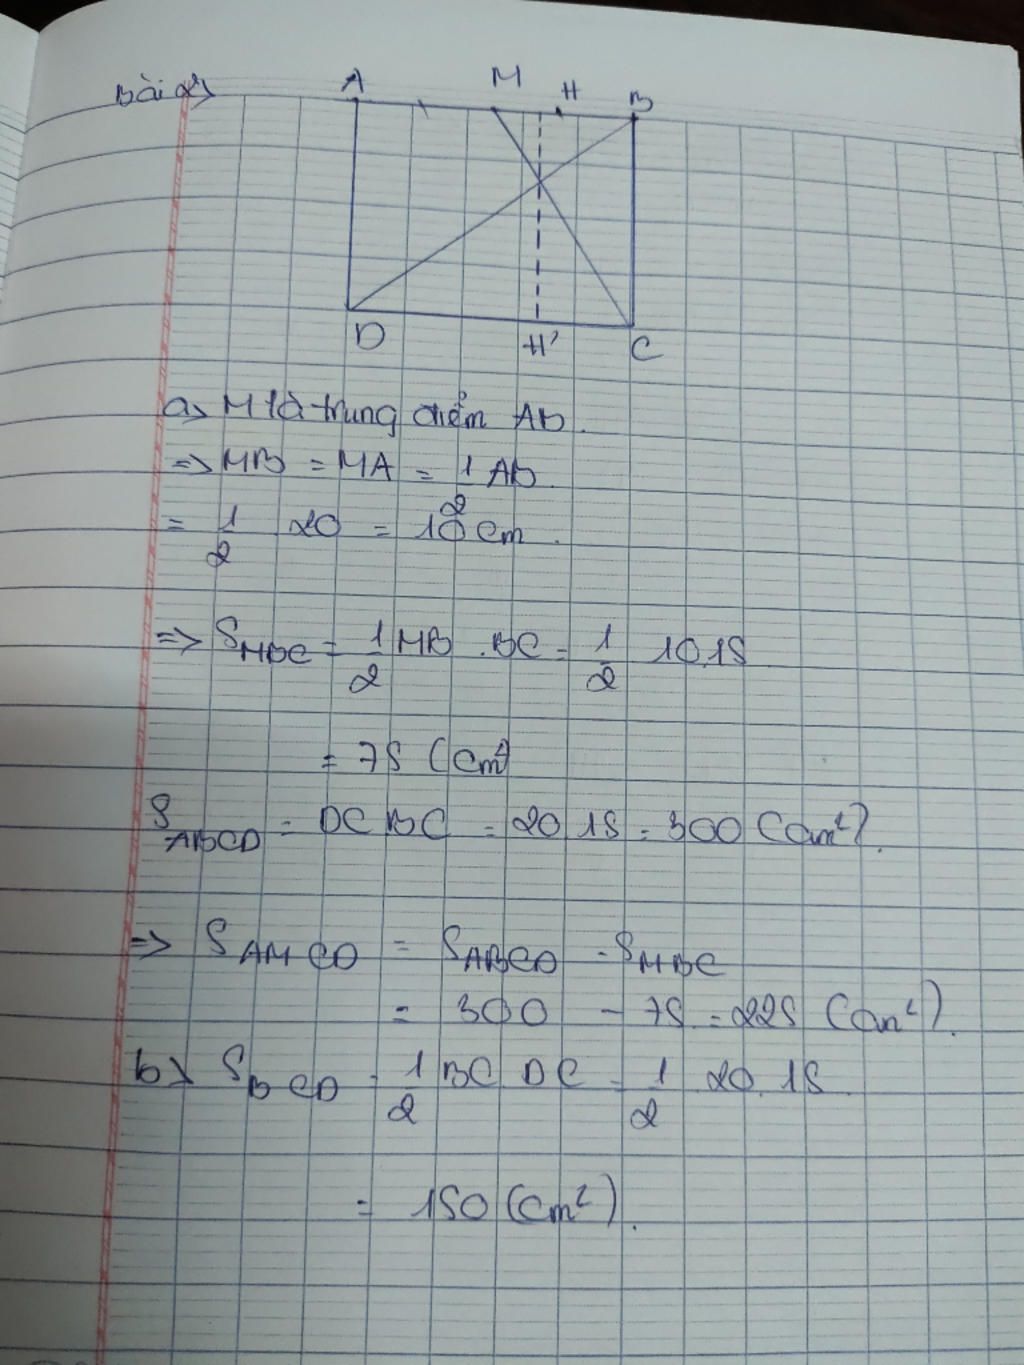 Bài 2>
A M H B
D H' C
a> M là trung điểm AB.
=> MB = MA = 1/2 AB
= 1/2 20 = 10 cm.
=> S MBC = 1/2 MB . BC = 1/2 10.15
= 75 (cm²)
S ABCD = DC BC = 20 15 = 300 (cm²).
=> S AMCD = S ABCD - S MBC
= 300 - 75 = 225 (cm²).
b> S BCD = 1/2 BC DC = 1/2 20.15
= 150 (cm²).